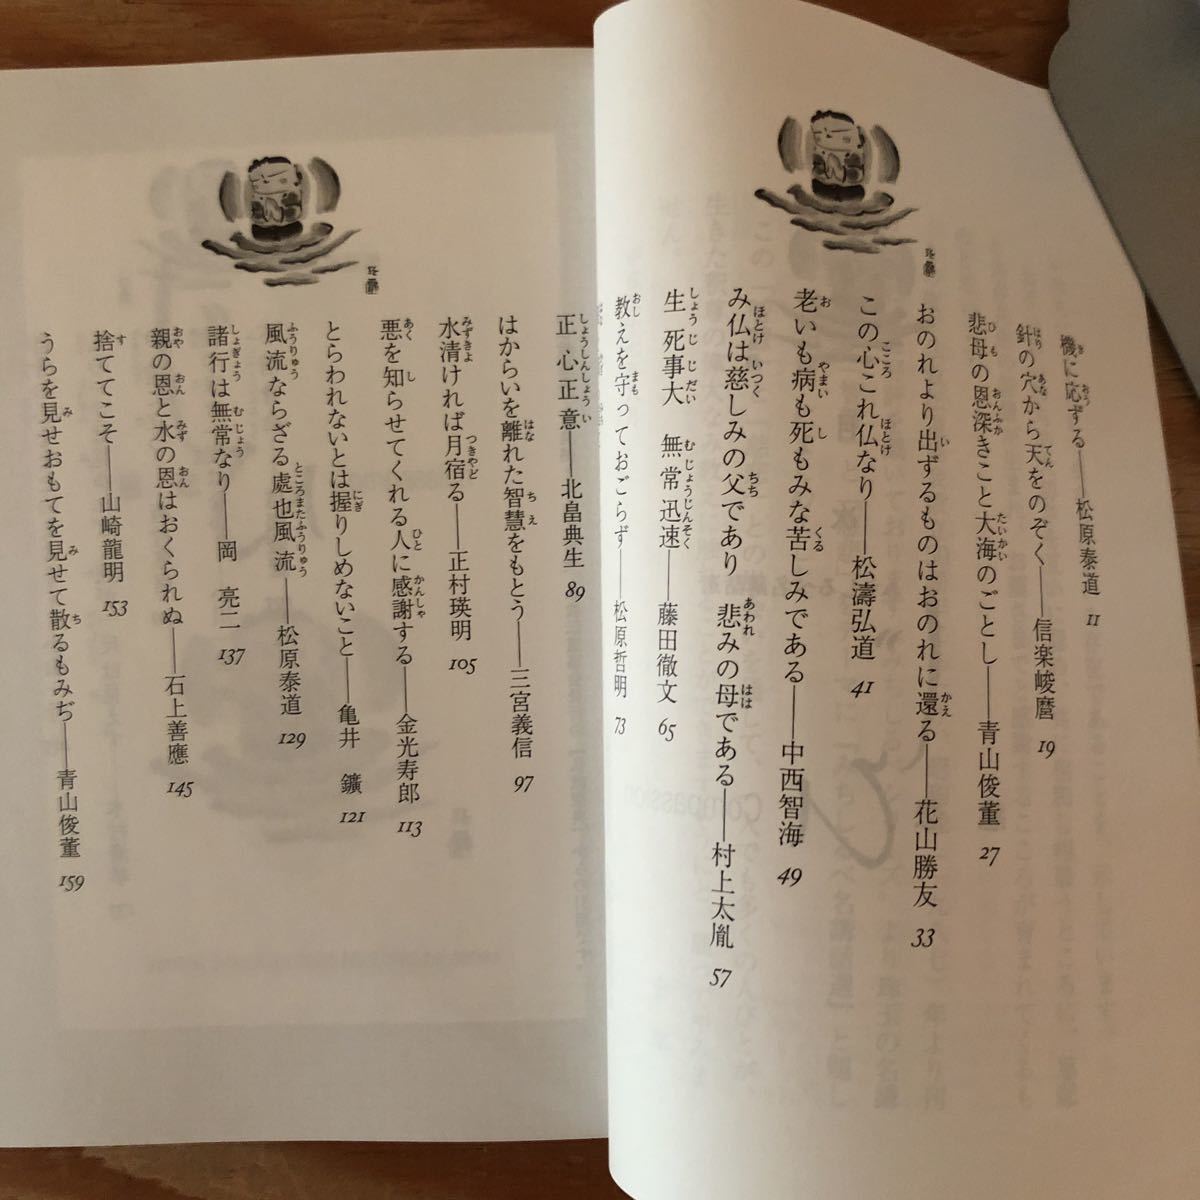 機に応ずる——松原泰道 11
針の穴から天をのぞく——信楽峻麿 19
悲母の恩深きこと大海のごとし——青山俊董 27
おのれより出ずるものはおのれに還る——花山勝友 33
この心これ仏なり——松濤弘道 41
老いも病も死もみな苦しみである——中西智海 49
み仏は慈しみの父であり 悲みの母である——村上太胤 57
生死事大 無常迅速——藤田徹文 65
教えを守っておごらず——松原哲明 73
正心正意——北畠典生 89
はからいを離れた智慧をもとう——三宮義信 97
水清ければ月宿る——正村瑛明 105
悪を知らせてくれる人に感謝する——金光寿郎 113
とらわれないとは握りしめないこと——亀井 鑛 121
風流ならざる處也風流——松原泰道 129
諸行は無常なり——岡 亮二 137
親の恩と水の恩はおくられぬ——石上善應 145
捨ててこそ——山崎龍明 153
うらを見せおもてを見せて散るもみぢ——青山俊董 159